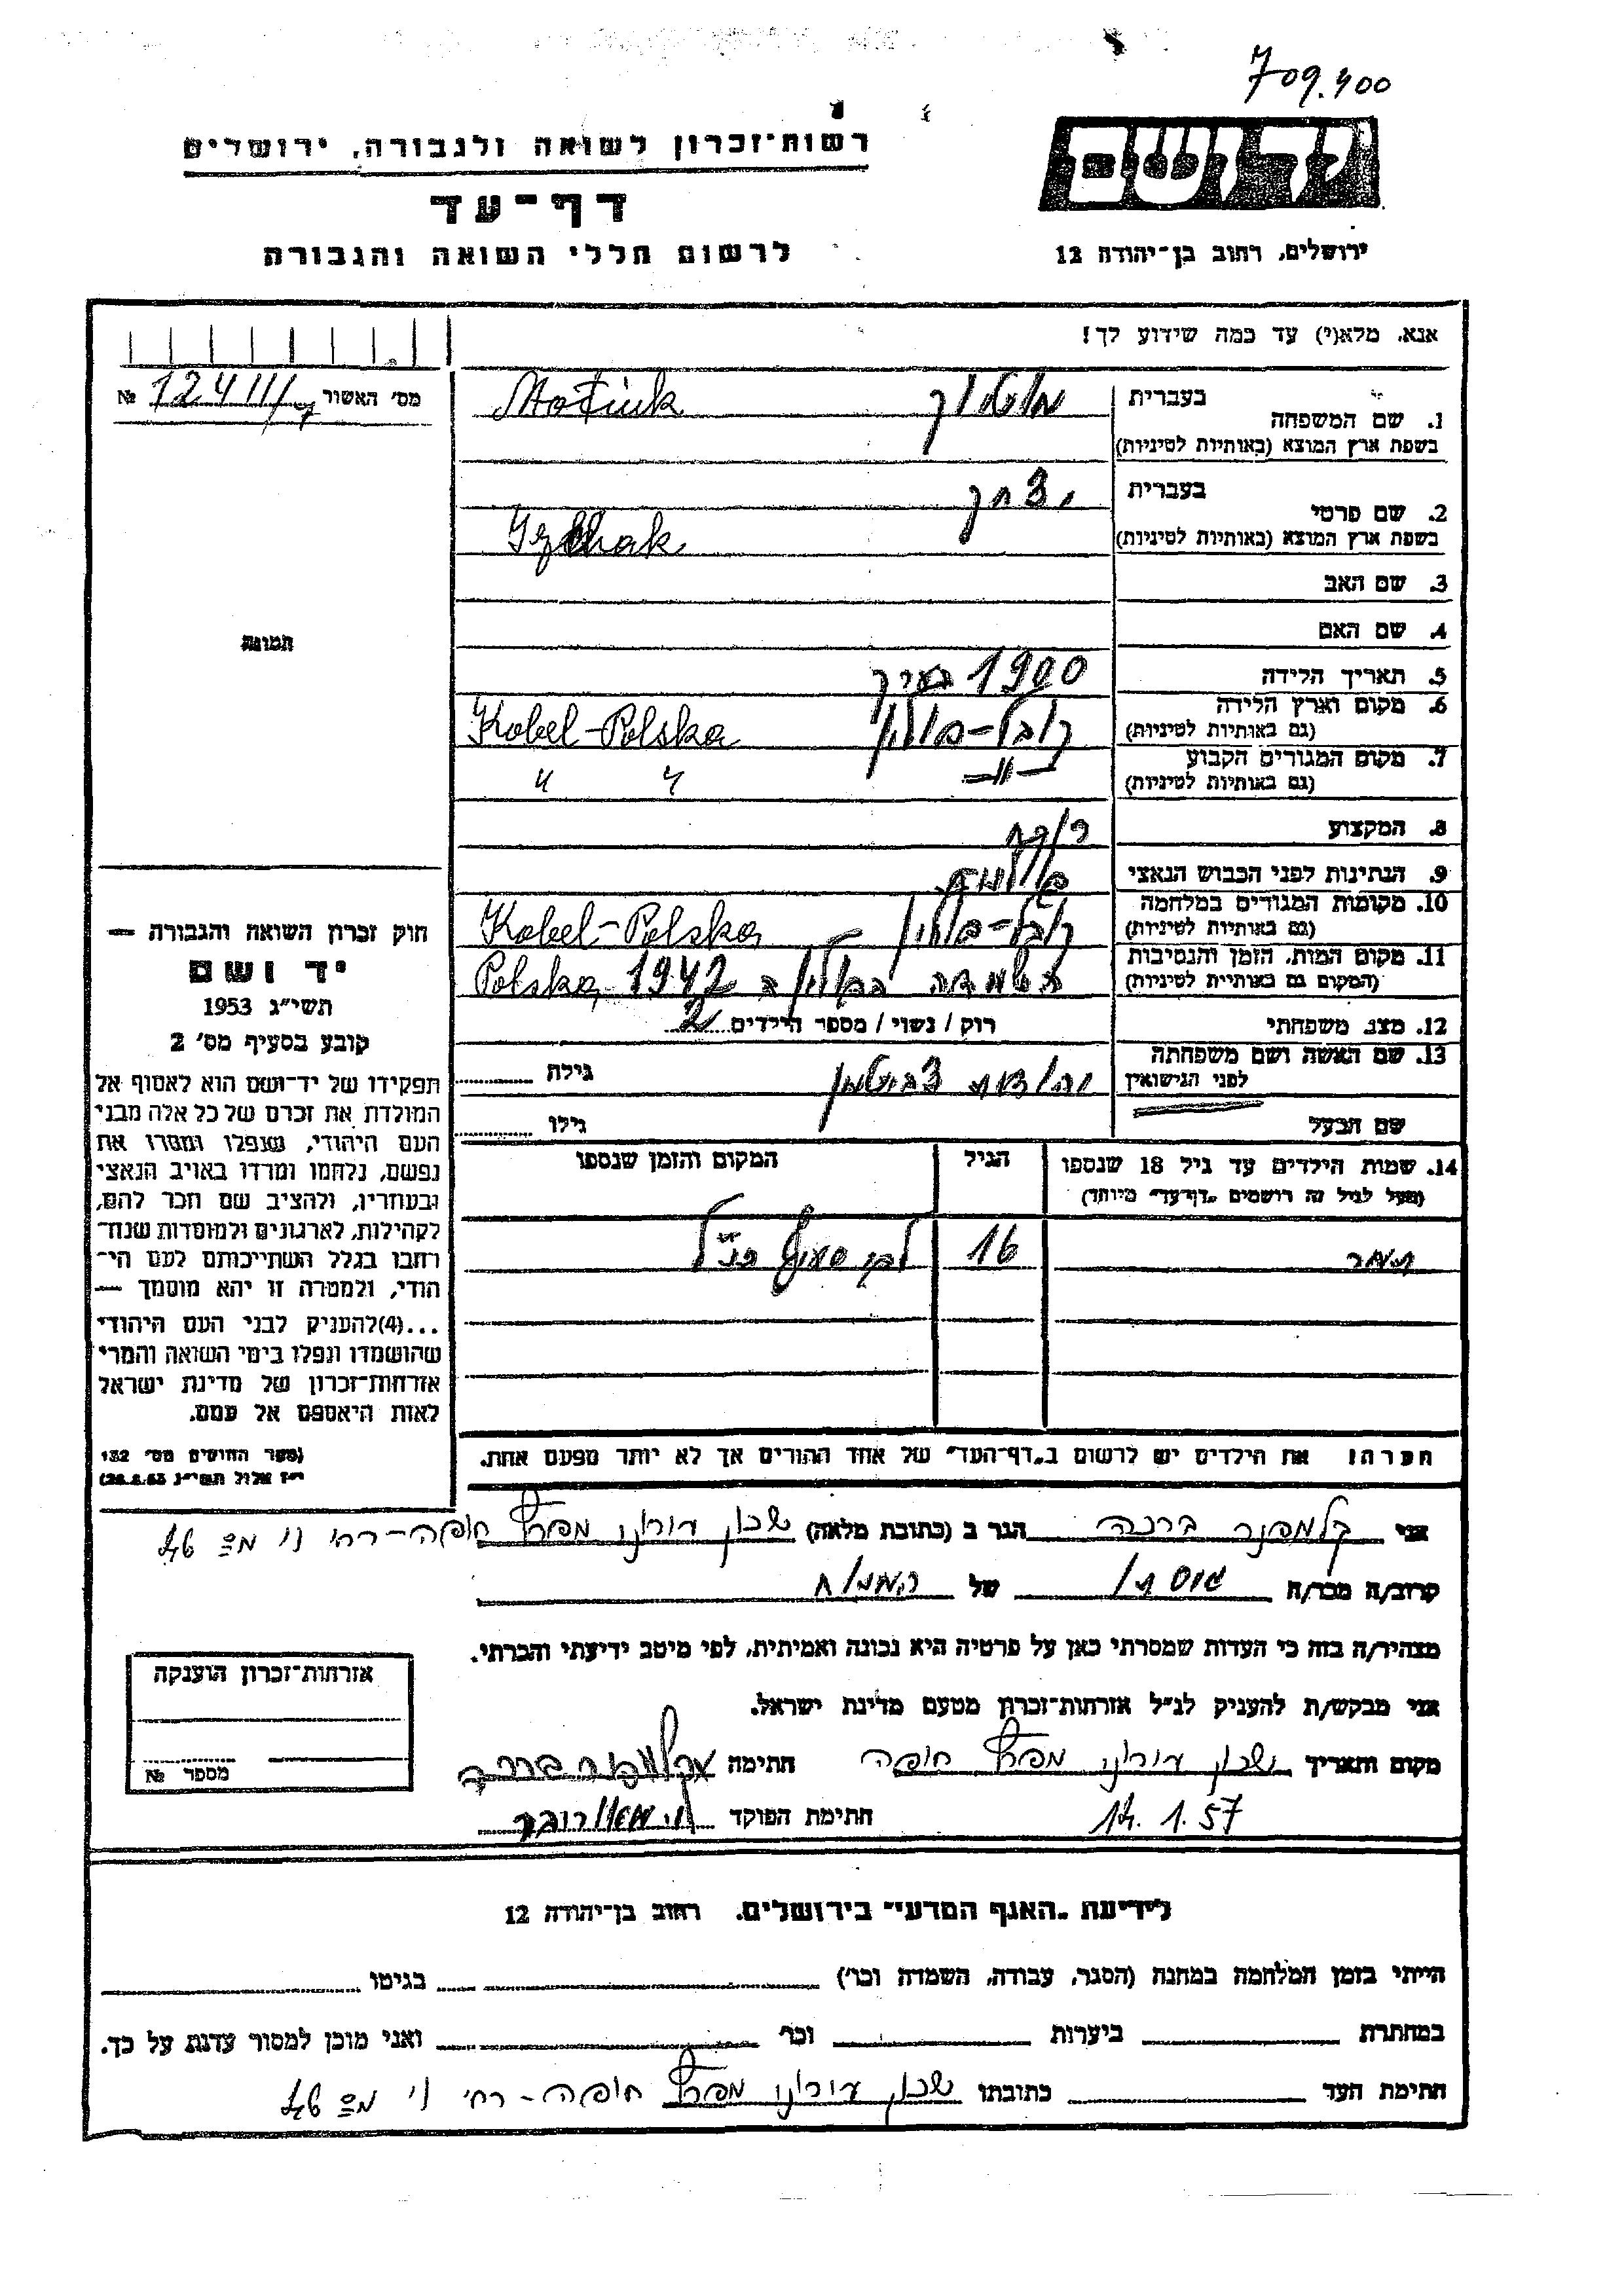 709.400
רשות־זכרון לשואה ולגבורה, ירושלים
דף־עד
לרשום חללי השואה והגבורה
יד ושם
ירושלים, רחוב בן־יהודה 12
אנא, מלא(י) עד כמה שידוע לך!
מס׳ האשור № 124111/
תמונה
חוק זכרון השואה והגבורה —
יד ושם
תשי״ג 1953
קובע בסעיף מס׳ 2
תפקידו של יד־ושם הוא לאסוף אל
המולדת את זכרם של כל אלה מבני
העם היהודי, שנפלו ומסרו את
נפשם, נלחמו ומרדו באויב הנאצי
ובעוזריו, ולהציב שם וזכר להם,
לקהילות, לארגונים ולמוסדות שנח־
רחבו בגלל השתייכותם לעם הי־
הודי, ולמטרה זו יהא מוסמך —
...(4)להעניק לבני העם היהודי
שהושמדו ונפלו בימי השואה והמרי
אזרחות־זכרון של מדינת ישראל
לאות היאספם אל עמם.
(ספר החוקים מס׳ 132
י״ז אלול תשי״ג 28.8.53)
1. שם המשפחה
בעברית
בשפת ארץ המוצא (באותיות לטיניות)
Motiuk
2. שם פרטי
בעברית יצחק
בשפת ארץ המוצא (באותיות לטיניות)
3. שם האב
4. שם האם
5. תאריך הלידה 1900 בערך
6. מקום וארץ הלידה
(גם באותיות לטיניות)
קובל-פולין Kobel-Polska
7. מקום המגורים הקבוע
(גם באותיות לטיניות)
—"— " "
8. המקצוע
9. הנתינות לפני הכבוש הנאצי פולנית
10. מקומות המגורים במלחמה
(גם באותיות לטיניות)
קובל-פולין — Kobel-Polska
11. מקום המות, הזמן והנסיבות
(המקום גם באותיות לטיניות)
השמדה בפולין ב 1942 Polska
12. מצב משפחתי
רוק / נשוי / מספר הילדים 2
13. שם האשה ושם משפחתה
לפני הנישואין
יהודית גילה
שם הבעל גילו
14. שמות הילדים עד גיל 18 שנספו
(מעל לגיל זה רושמים „דף־עד״ מיוחד)
הגיל
המקום והזמן שנספו
תמר 16 לפי סעיף כנ״ל
הערה: את הילדים יש לרשום ב„דף־העד״ של אחד ההורים אך לא יותר מפעם אחת.
אני קלמפנר ברכה הגר ב (כתובת מלאה) שכון עורנו מפרץ חיפה-רח׳
קרוב/ה מכר/ה גיסתו של המנוח
מצהיר/ה בזה כי העדות שמסרתי כאן על פרטיה היא נכונה ואמיתית, לפי מיטב ידיעתי והכרתי.
אני מבקש/ת להעניק לנ״ל אזרחות־זכרון מטעם מדינת ישראל.
מקום ותאריך שכון עורנו מפרץ חיפה חתימה קלמפנר ברכה
14.1.57 חתימת הפוקד
אזרחות־זכרון הוענקה
מספר №
לידיעת „האגף המדעי״ בירושלים. רחוב בן־יהודה 12
הייתי בזמן המלחמה במחנה (הסגר, עבודה, השמדה וכו׳) בגיטו
במחתרת ביערות וכו׳ ואני מוכן למסור עדות על כך.
חתימת העד כתובתו שכון עורנו מפרץ חיפה-רח׳